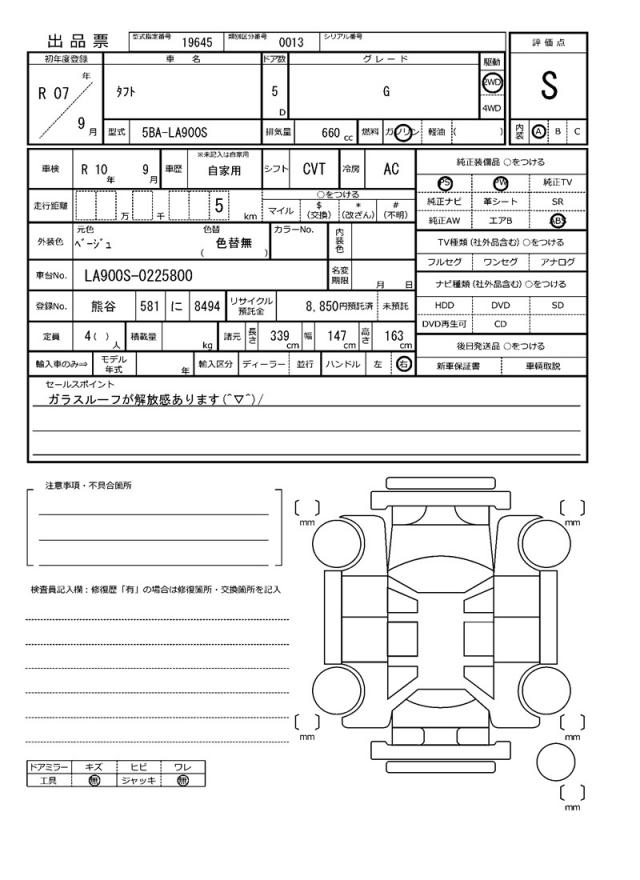 出品票
型式指定番号 19645 類別区分番号 0013 シリアル番号
初年度登録 車名 ドア数 グレード 駆動 評価点
R 07 年 9 月
ﾀﾌﾄ 5 D G 2WD 4WD
S
型式 5BA-LA900S 排気量 660 cc 燃料 ガソリン 軽油 ( ) 内装 A B C
車検 R 10 年 9 月 車歴 ※未記入は自家用 自家用 シフト CVT 冷房 AC
純正装備品 ○をつける
PS PW 純正TV
純正ナビ 革シート SR
純正AW エアB ABS
走行距離 万 千 5 km
○をつける
マイル $ (交換) * (改ざん) # (不明)
外装色 元色 ﾍﾞｰｼﾞｭ 色替 色替無 ( ) カラーNo. 内装色
TV種類 (社外品含む) ○をつける
フルセグ ワンセグ アナログ
車台No. LA900S-0225800 名変期限 月 日
ナビ種類 (社外品含む) ○をつける
HDD DVD SD
DVD再生可 CD
登録No. 熊谷 581 に 8494 リサイクル預託金 8,850円預託済 未預託
定員 4( ) 人 積載量 kg 諸元 長さ 339 cm 幅 147 cm 高さ 163 cm
後日発送品 ○をつける
新車保証書 車輌取説
輸入車のみ⇒ モデル年式 年 輸入区分 ディーラー 並行 ハンドル 左 右
セールスポイント
ガラスルーフが解放感あります(^▽^)/
注意事項・不具合箇所
検査員記入欄：修復歴「有」の場合は修復箇所・交換箇所を記入
mm
mm
mm
mm
mm
ドアミラー キズ ヒビ ワレ
工具 無 ジャッキ 無